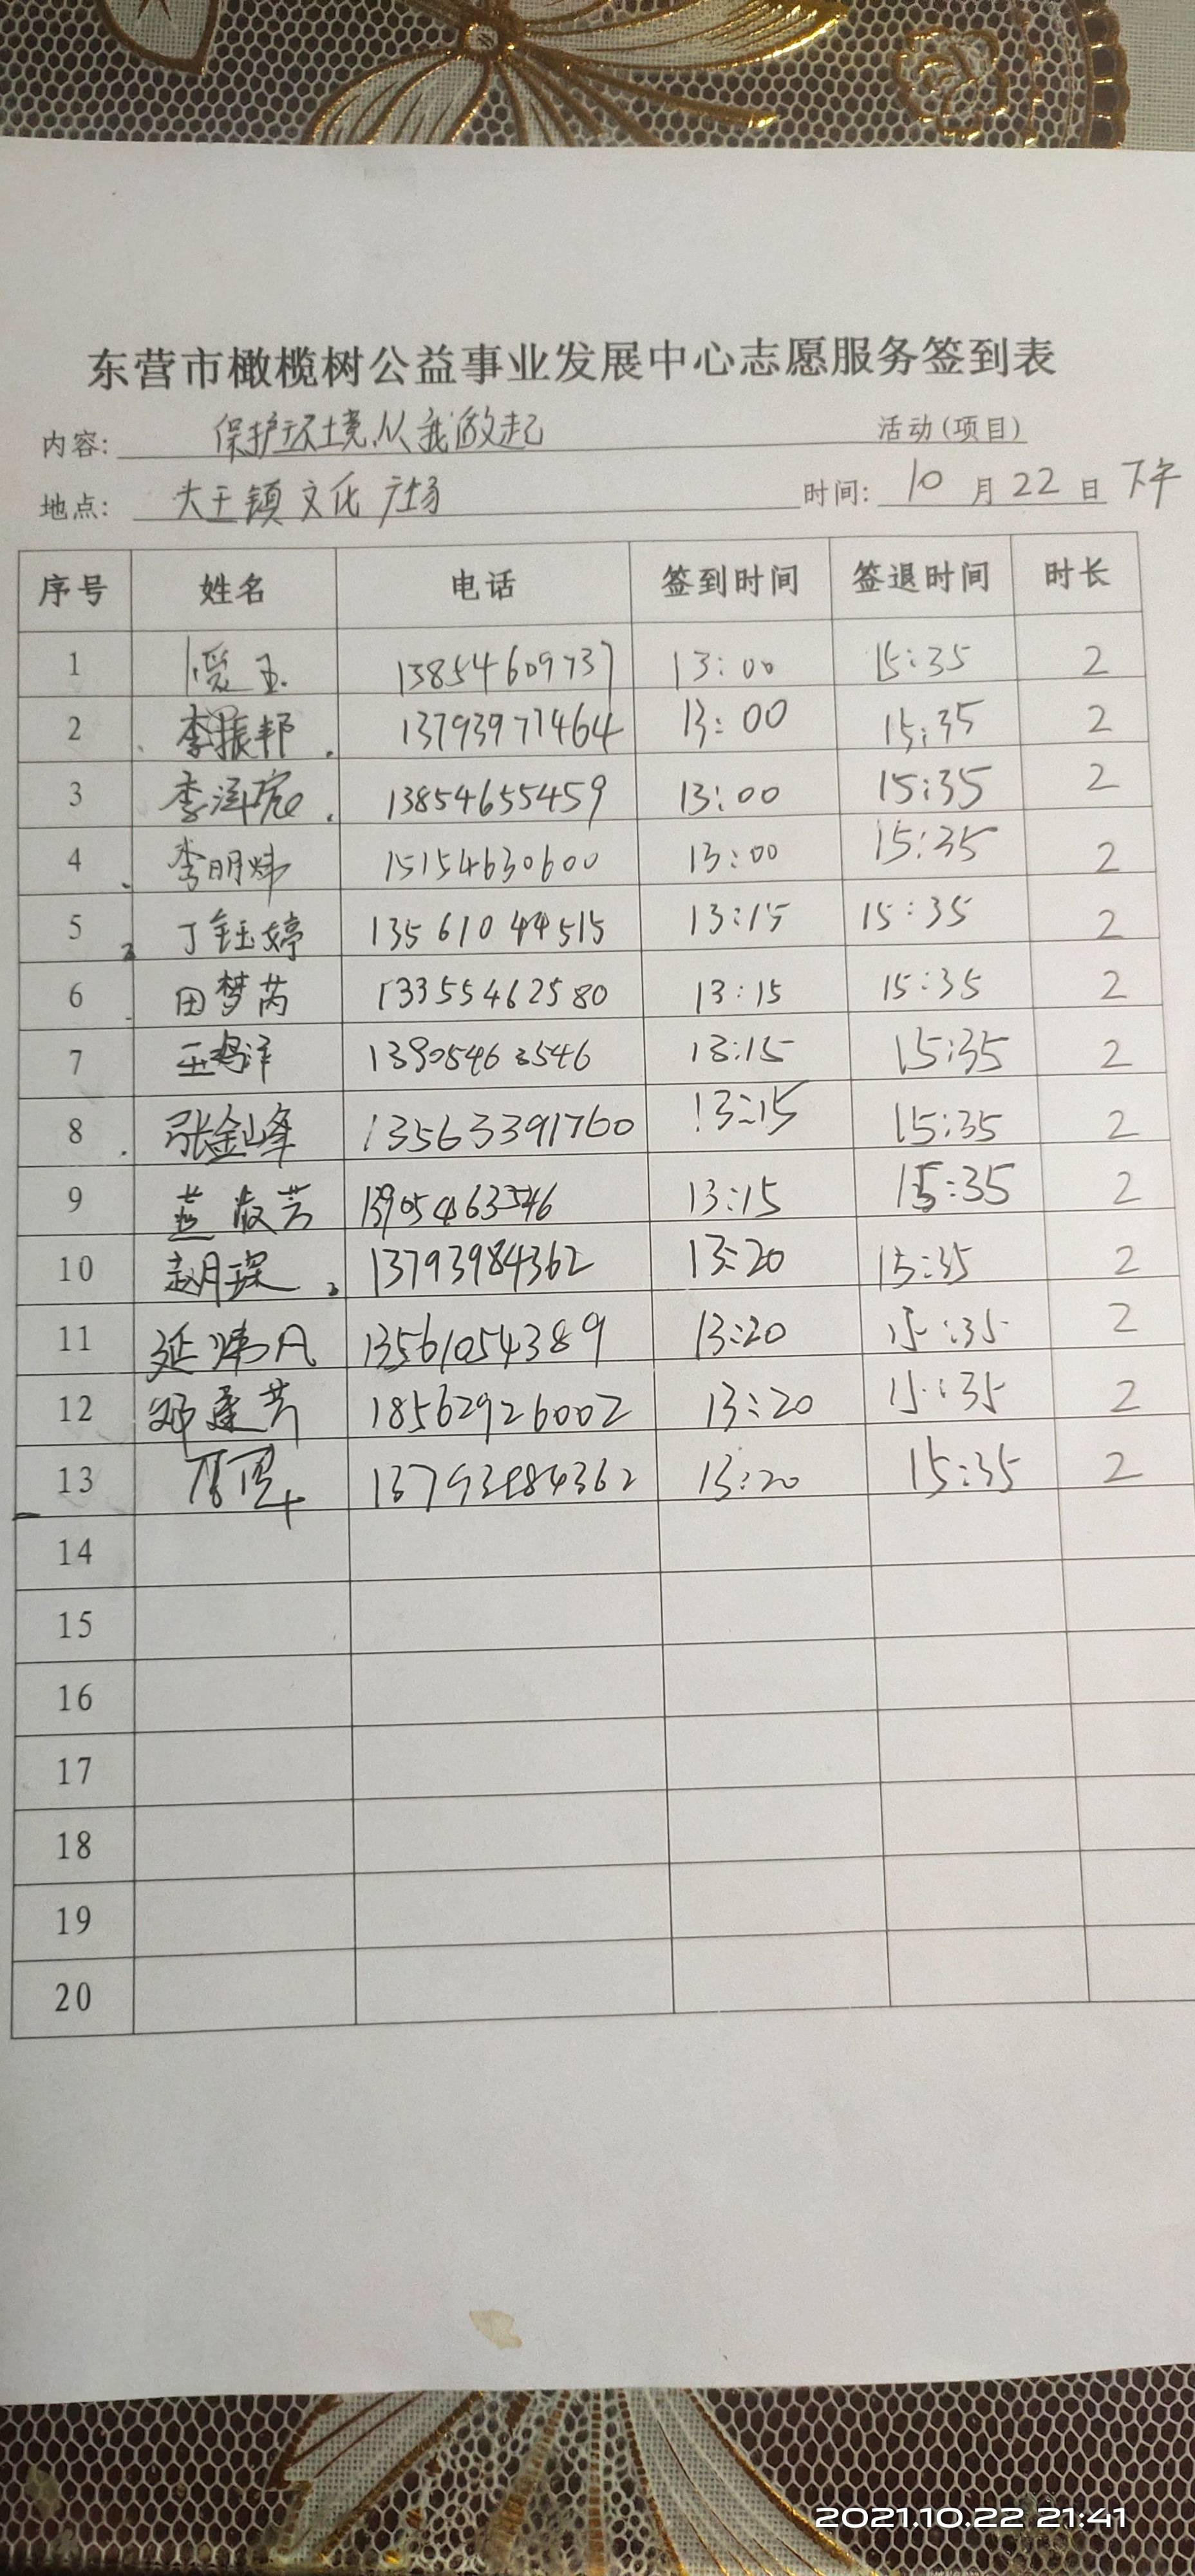 东营市橄榄树公益事业发展中心志愿服务签到表
内容: 保护环境从我做起 活动(项目)
地点: 大王镇文化广场 时间: 10月22日下午
序号 姓名 电话 签到时间 签退时间 时长
1 13854609737 13:00 15:35 2
2 李振邦 13793977464 13:00 15:35 2
3 李泽宛 13854655459 13:00 15:35 2
4 李明炜 15154630600 13:00 15:35 2
5 丁钰婷 13561044515 13:15 15:35 2
6 田梦芮 13355462580 13:15 15:35 2
7 13905463546 13:15 15:35 2
8 张金峰 13563391760 13:15 15:35 2
9 燕淑芳 13905463546 13:15 15:35 2
10 赵月琛 13793984362 13:20 15:35 2
11 延炜凡 13561054389 13:20 15:35 2
12 邓孟芳 18562926002 13:20 15:35 2
13 13793984362 13:20 15:35 2
14
15
16
17
18
19
20
2021.10.22 21:41